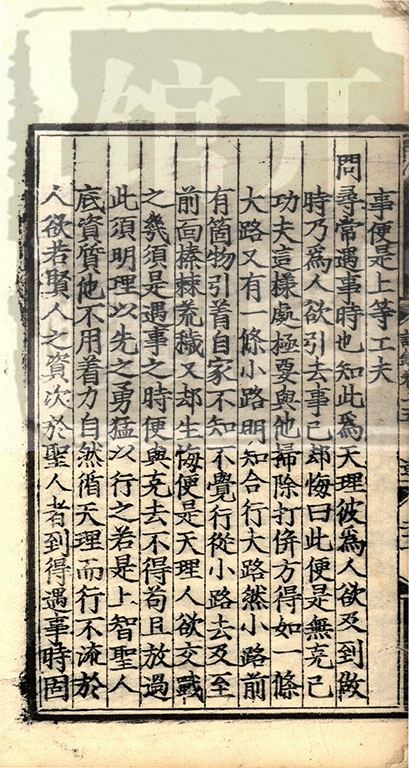 事便是上等工夫
問尋常遇事時也知此爲天理彼爲人欲及到做
時乃爲人欲引去事已却悔曰此便是無克己
功夫這樣處極要與他掃除打併方得如一條
大路又有一條小路明知合行大路然小路前
有箇物引着自家不知不覺行從小路去及至
前面榛棘荒穢又却生悔便是天理人欲交戰
之幾須是遇事之時便與克去不得苟且放過
此須明理以先之勇猛以行之若是上智聖人
底資質他不用着力自然循天理而行不流於
人欲若賢人之資次於聖人者到得遇事時固